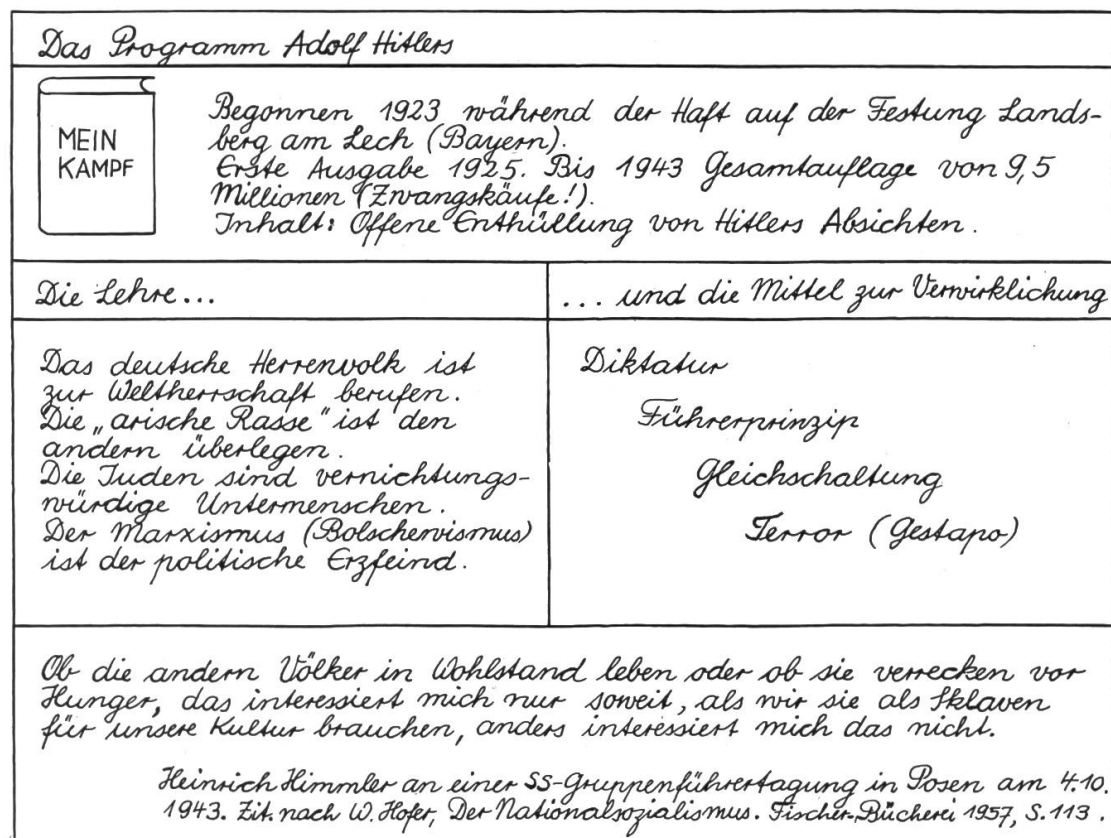 Das Programm Adolf Hitlers
MEIN
KAMPF
Begonnen 1923 während der Haft auf der Festung Lands-
berg am Lech (Bayern).
Erste Ausgabe 1925. Bis 1943 Gesamtauflage von 9,5
Millionen (Zwangskäufe!).
Inhalt: Offene Enthüllung von Hitlers Absichten.
Die Lehre...
... und die Mittel zur Verwirklichung
Das deutsche Herrenvolk ist
zur Weltherrschaft berufen.
Die „arische Rasse" ist den
andern überlegen.
Die Juden sind vernichtungs-
würdige Untermenschen.
Der Marxismus (Bolschewismus)
ist der politische Erzfeind.
Diktatur
Führerprinzip
Gleichschaltung
Terror (Gestapo)
Ob die andern Völker in Wohlstand leben oder ob sie verrecken vor
Hunger, das interessiert mich nur soweit, als wir sie als Sklaven
für unsere Kultur brauchen, anders interessiert mich das nicht.
Heinrich Himmler an einer SS-Gruppenführertagung in Posen am 4.10.
1943. Zit. nach W. Hofer, Der Nationalsozialismus. Fischer-Bücherei 1957, S. 113.